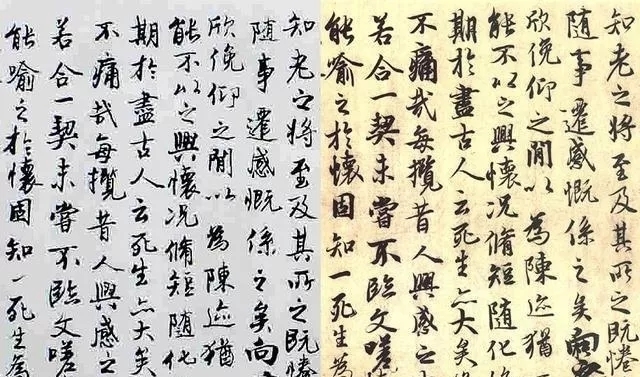 知老之將至及其所之既惓
隨事遷感慨係之矣向
欣俛仰之閒以為陳迹猶
能不以之興懷况脩短隨化
期於盡古人云死生亦大矣
不痛哉每攬昔人興感之
若合一契未嘗不臨文嗟
能喻之於懷固知一死生為
知老之將至及其所之既惓
隨事遷感慨係之矣向
欣俛仰之閒以為陳迹猶
能不以之興懷况脩短隨化
期於盡古人云死生亦大矣
不痛哉每攬昔人興感之
若合一契未嘗不臨文嗟
能喻之於懷固知一死生為